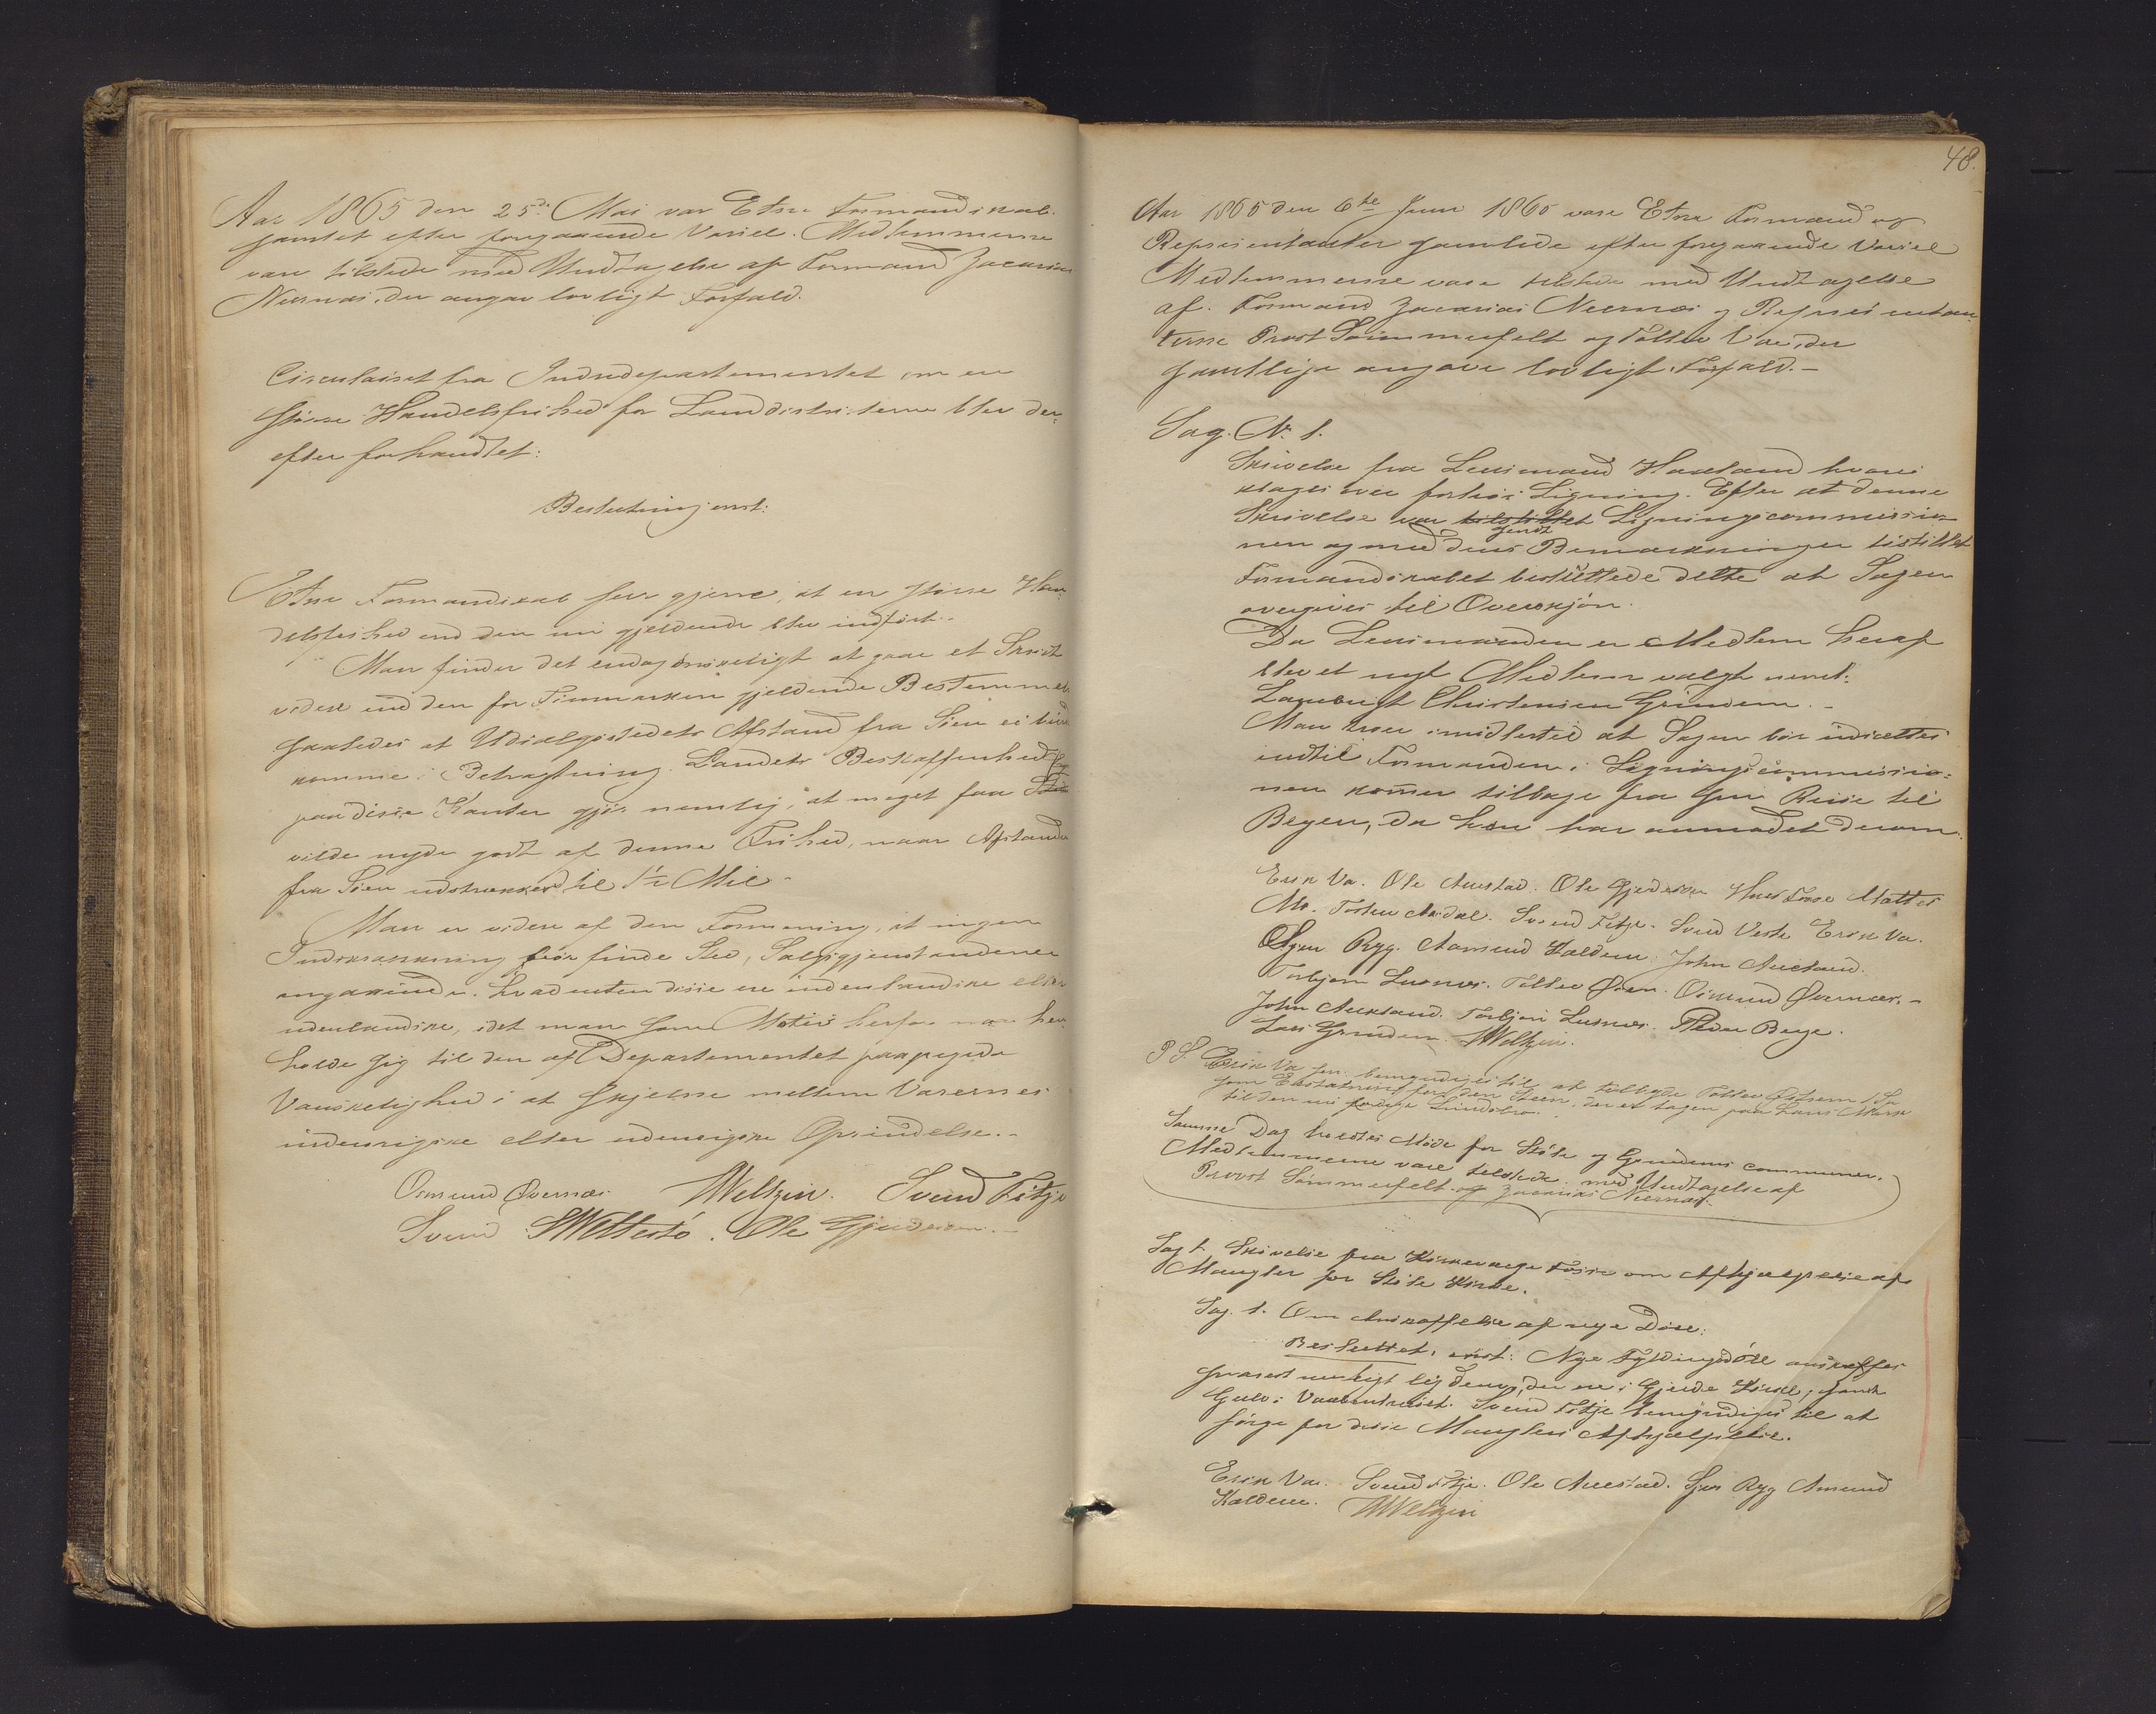 Aar 1865 den 25de Mai var Etne Formandskab
samlet efter foregaaende Varsel. Medlemmerne
vare tilstede med Undtagelse af Formand Zacarias
Neernæs, der angav lovligt Forfald.
Circulairet fra Indredepartementet om en
større Handelsfrihed for Landdistricterne blev der-
efter forhandlet:
Beslutning enst:
Etne Formandskab seer gjerne, at en større Han-
delsfrihed end den nu gjeldende blev indført.
Man finder det endog ønskeligt at gaae et Skridt
videre end den for Finmarken gjeldende Bestemmel
saaledes at Udsalgsstedets Afstand fra Søen ei burde
komme i Betragtning. Landets Beskaffenhed
paa disse Kanter gjør nemlig, at meget faa
vilde nyde godt af denne Frihed, naar Afstanden
fra Søen udstrækkes til 1½ Mil.
Man er videre af den Formening, at ingen
Indskrænkning bør finde Sted, Salgsgjenstandene
angaaende, hvad enten disse ere indenlandske eller
udenlandske, idet man som Motiv herfor maa hen-
holde sig til den af Departementet paapegede
Vanskelighed i at skjelne mellem Varernes
indenrigske eller udenrigske Oprindelse.
Osmund Øvernæs. Weltzin. Svend Fitje
Svend Ole Gjerdesøen.
48.
Aar 1865 den 6te Juni 1865 vare Etne Formænd og
Repræsentanter samlede efter foregaaende Varsel
Medlemmerne vare tilstede med Undtagelse
af. Formand Zacarias Neernæs og Repræsentan-
terne Provst Sömmerfelt og Tollev Vae, der
samtlige angave lovligt Forfald.-
Sag. N. 1.
Skrivelse fra Lensmand Haaland hvori
klages over forhøi Ligning. Efter at denne
Skrivelse var tilstillet Ligningscommissio-
nen og med dens Bemærkninger tilstillet
Formandskabet besluttede dette at Sagen
overgives til Overskjøn.
Da Lensmanden er Medlem heraf
blev et nyt Medlem valgt neml:
Lambrigt Christensen Grinden.-
Man troer imidlertid at Sagen bør udsættes
indtil Formanden i Ligningscommissio-
nen kommer tilbage fra sin Reise til
Bergen, da han har anmodet derom.
Erik Va. Ole Austad. Ole Gjerdesøen Hans Fosse Mattis
Mo. Tosten Mæhle. Svend Fitje. Svend Veste Erik Va.
Sjur Ryg. Aamund Kalden. John Aucland.
Torbjørn Lusnæs. Tollev Øien. Osmund Øvernæs.-
John Aucland. Torbjørn Lusnæs. Peder Berge.
Lars Grinden. Weltzin.
P.S. Erik Va sen. bemyndiges til at tilbyde Tollev Østrem 1 Sp
som Erstatning for den Steen, der er tagen paa hans Mark
til den nu færdige Sundebro.
Samme Dag holdtes Møde for Støle og Grindens communer.
Medlemmerne vare tilstede med Undtagelse af
Provst Sömmerfelt og Zacarias Neernæs.
Sag 1. Skrivelse fra Kirkeværge Fosse om Afhjælpelse af
Mangler for Støle Kirke.
Sag. 1. Om Anskaffelse af nye Döre:
Besluttet, enst: Nye Fyldingsdöre anskaffes
snarest muligt lig dem, der ere i Gjerde Kirke, samt
Gulv i Vaabenhuset. Svend Fitje bemyndiges til at
sörge for disse Manglers Afhjælpelse.
Erik Va. Svend Fitje. Ole Austad. Sjur Ryg Amund
Kalden. Weltzin